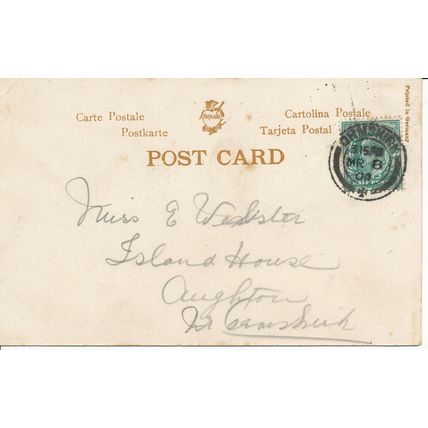 Carte Postale
Postkarte
Cartolina Postale
Tarjeta Postal
Printed in Germany
POST CARD
ORMSKIRK
MR 8
03
Miss E Webster
Island House
Aughton
Nr Ormskirk